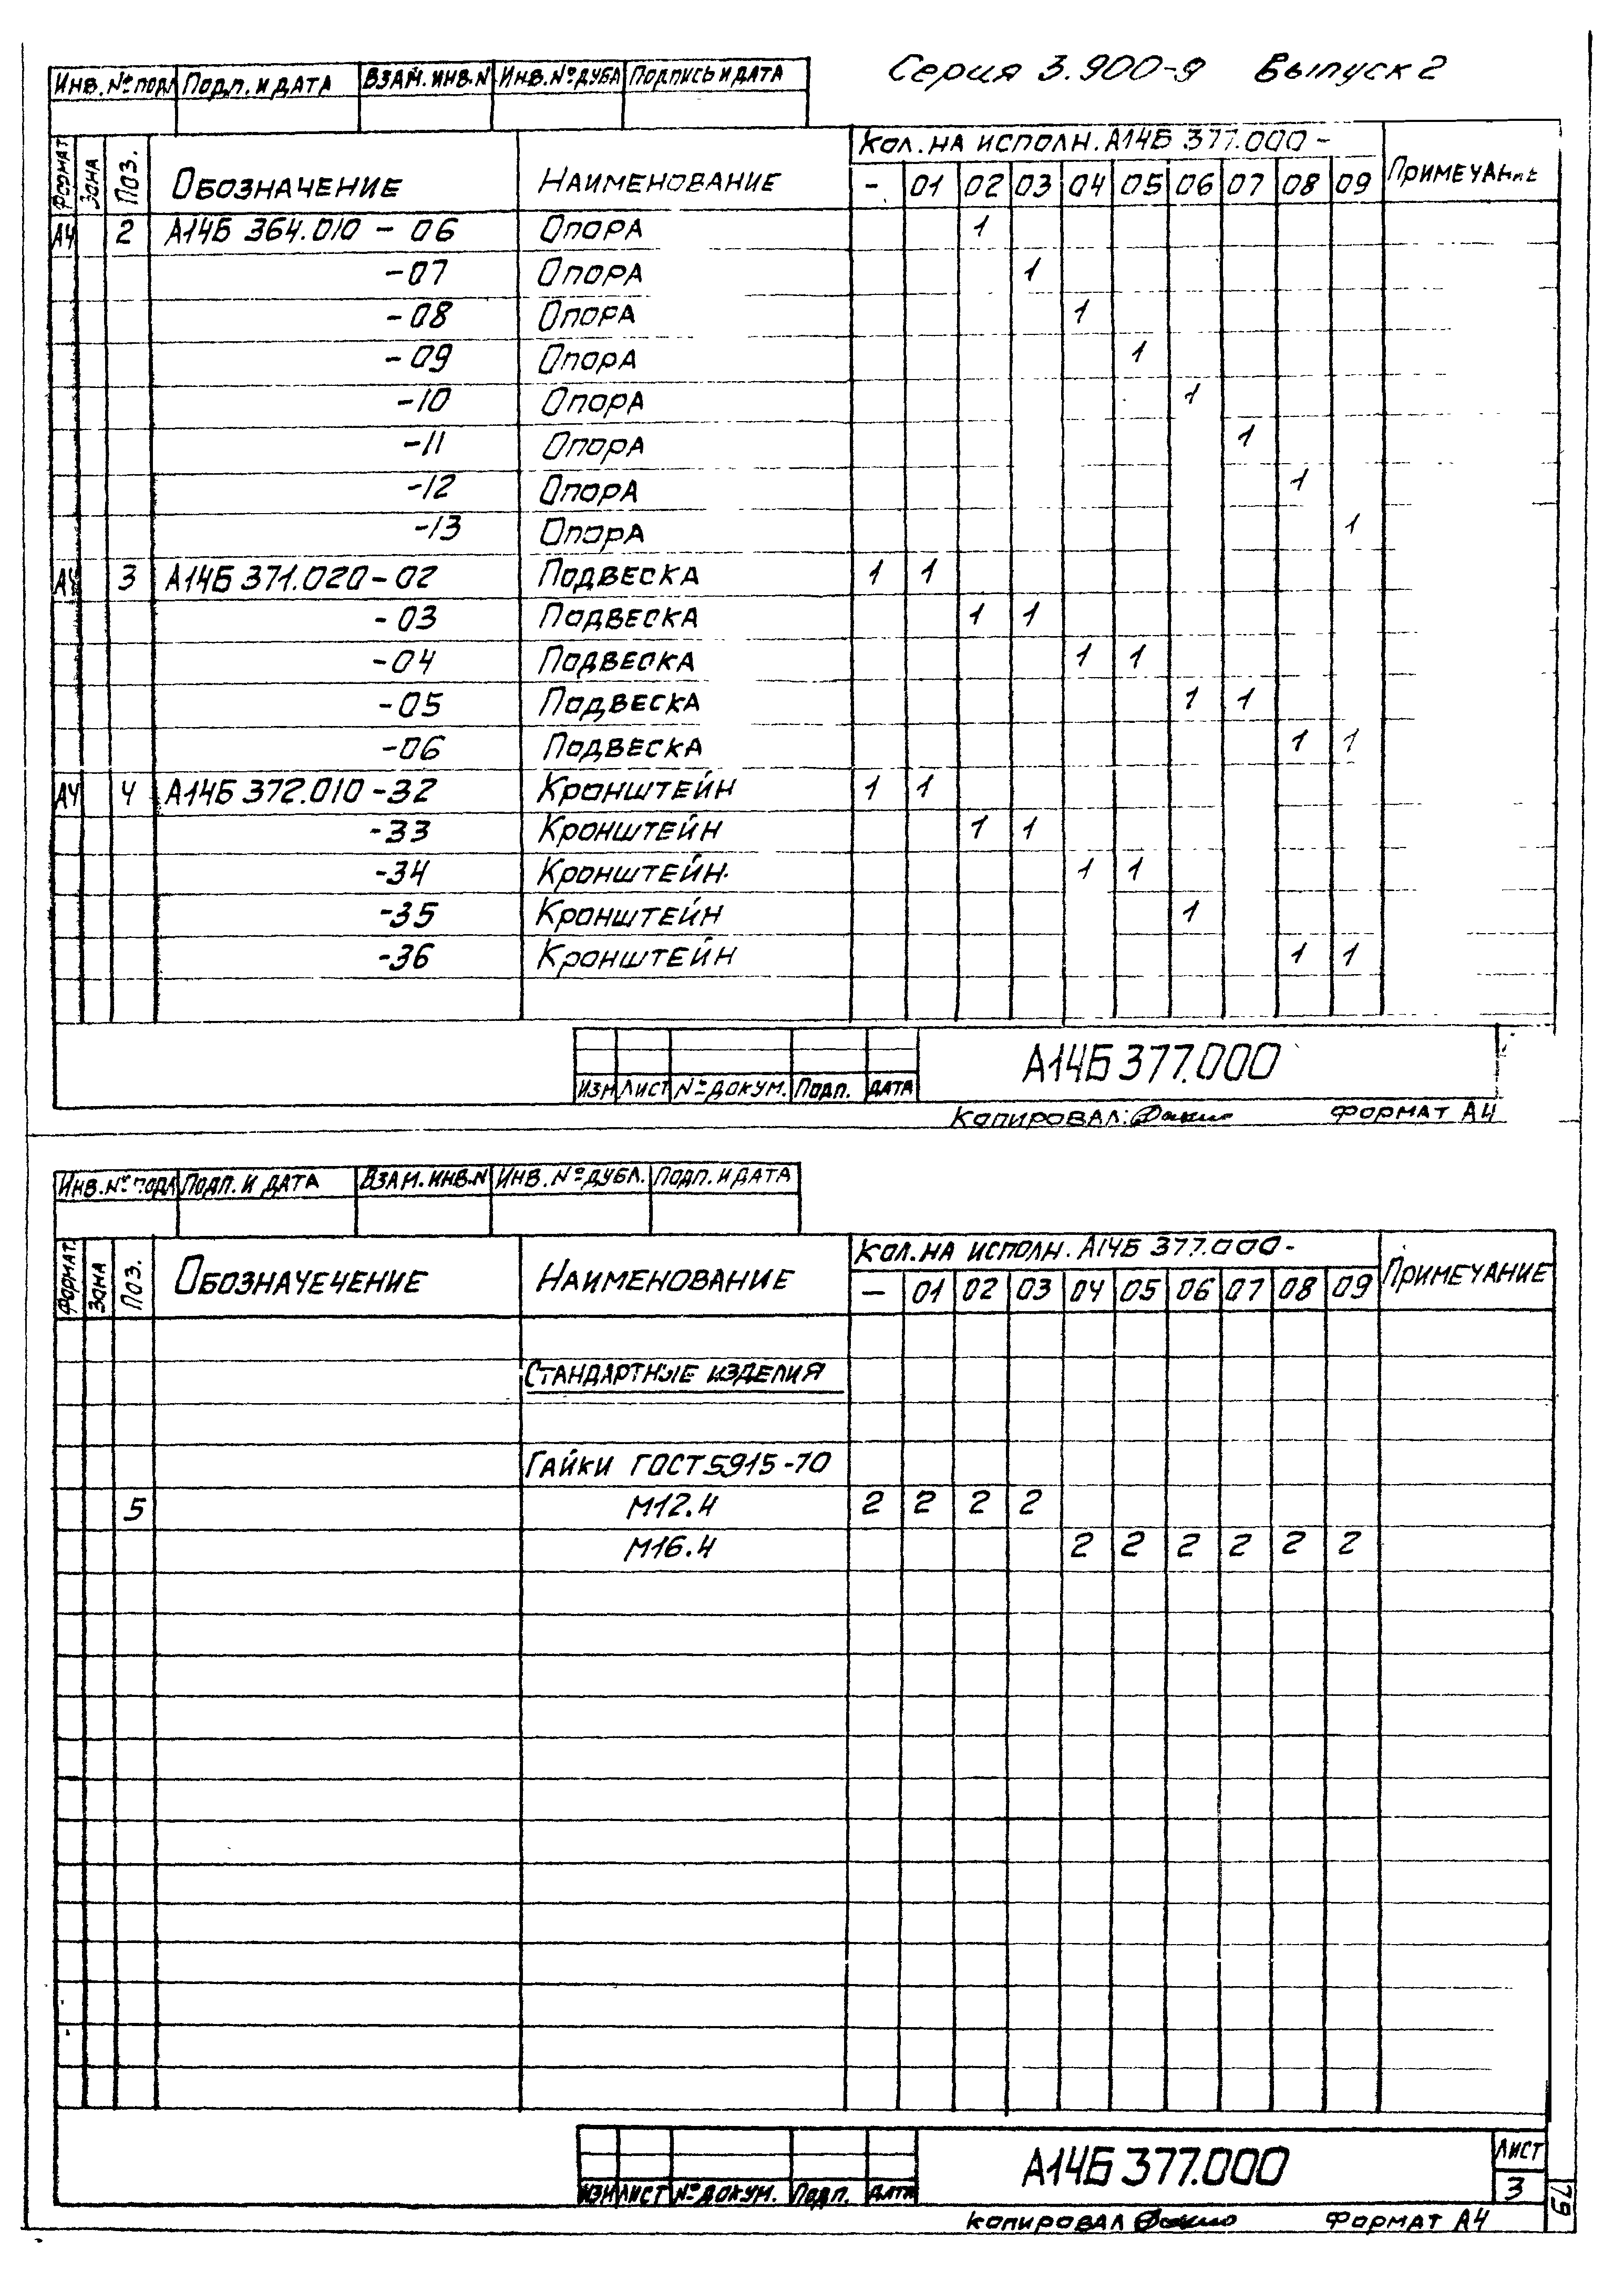 Серия 3.900-9 Выпуск 2
Инв. № подл Подп. и дата Взам. инв. N Инв. № дубл Подпись и дата
Формат Зона Поз. Обозначение Наименование Кол. на исполн. А14Б 377.000 - Примечание
- 01 02 03 04 05 06 07 08 09
А4 2 А14Б 364.010 - 06 Опора 1
-07 Опора 1
-08 Опора 1
-09 Опора 1
-10 Опора 1
-11 Опора 1
-12 Опора 1
-13 Опора 1
А4 3 А14Б 371.020 - 02 Подвеска 1 1
-03 Подвеска 1 1
-04 Подвеска 1 1
-05 Подвеска 1 1
-06 Подвеска 1 1
А4 4 А14Б 372.010 -32 Кронштейн 1 1
-33 Кронштейн 1 1
-34 Кронштейн 1 1
-35 Кронштейн 1
-36 Кронштейн 1 1
А14Б 377.000
Изм Лист № докум. Подп. Дата
Копировал: Формат А4
Инв. № подл Подп. и дата Взам. инв. N Инв. № дубл. Подп. и дата
Формат Зона Поз. Обозначечение Наименование Кол. на исполн. А14Б 377.000- Примечание
- 01 02 03 04 05 06 07 08 09
Стандартные изделия
Гайки ГОСТ 5915-70
5 М12.4 2 2 2 2
М16.4 2 2 2 2 2 2
А14Б 377.000 Лист
3
Изм Лист № докум. Подп. Дата
Копировал Формат А4
79